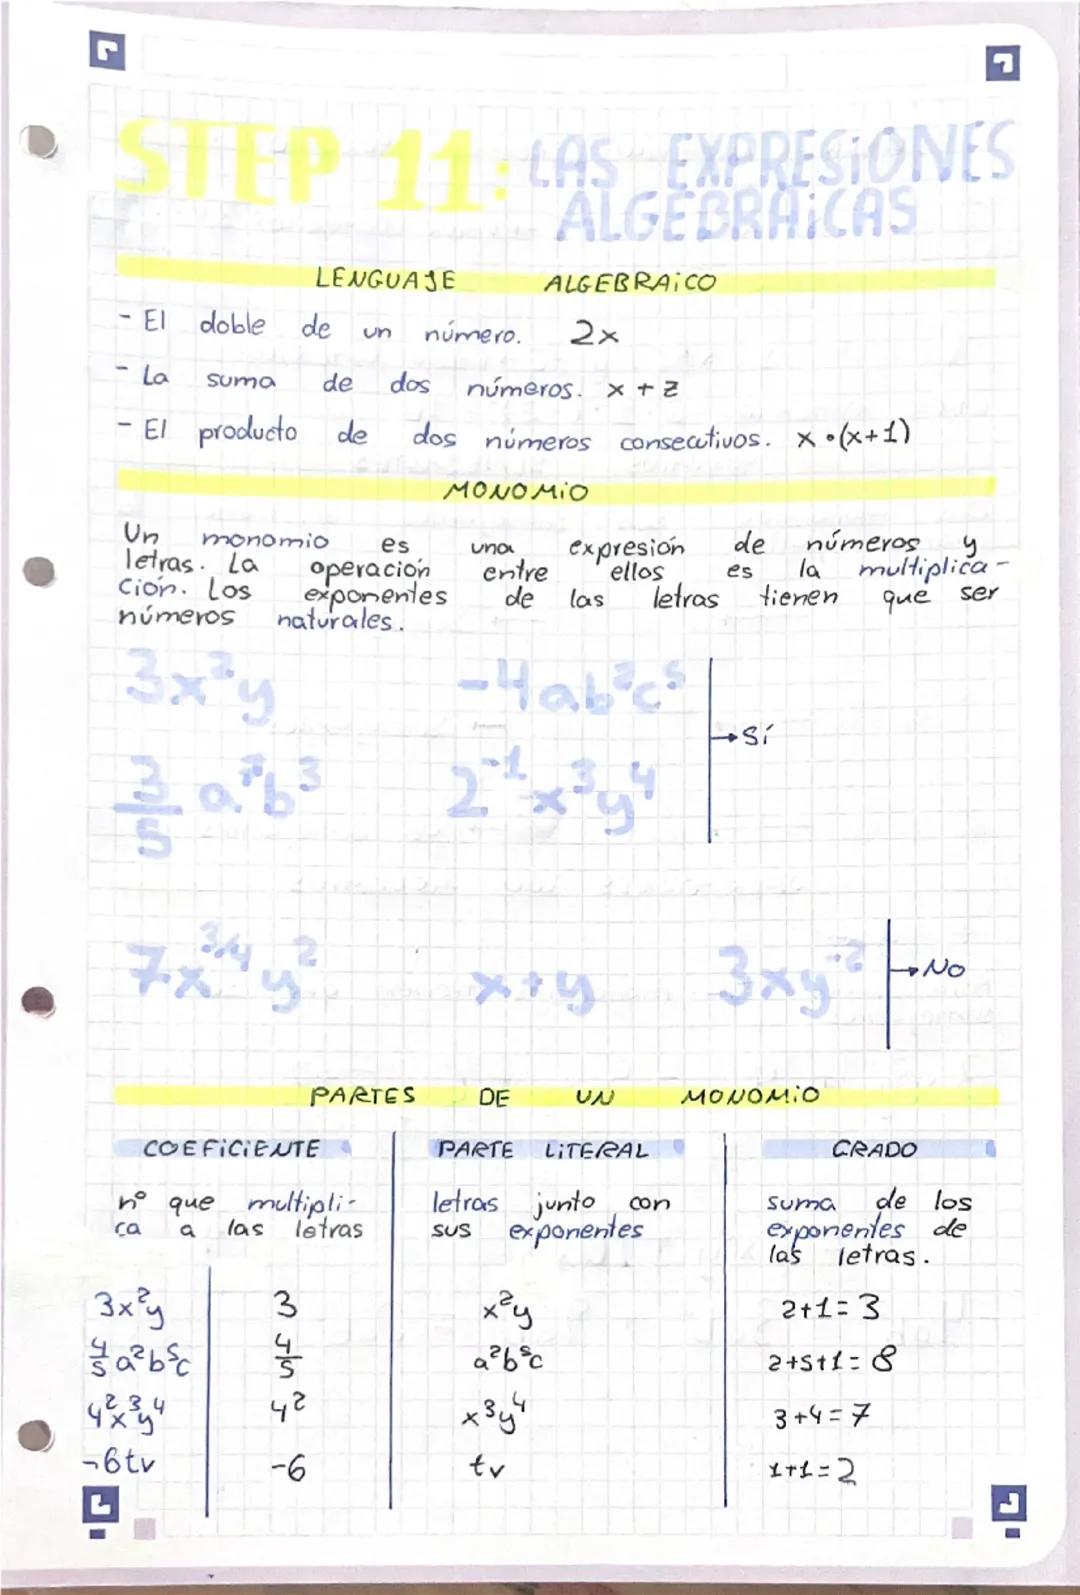 STEP 11: LAS EXPRESiONES
ALGEBRAiCAS
LENGUAJE ALGEBRAiCO
- El doble de un número. 2x
- La suma de dos números. x + z
- El producto de dos números consecutivos. x·(x+1)
MONOMiO
Un monomio es una expresión de números y
letras. La operación entre ellos es la multiplica-
ción. Los exponentes de las letras tienen que ser
números naturales.
3x²y -4ab²c⁵
→ Sí
3/5 a⁷b³ 2⁻¹x³y⁴
7x^3/4 y² x+y 3xy⁻² → No
PARTES DE UN MONOMiO
COEFiCiENTE PARTE LiTERAL GRADO
nº que multipli- letras junto con suma de los
ca a las letras sus exponentes exponentes de
las letras.
3x²y 3 x²y 2+1=3
4/5 a²b⁵c 4/5 a²b⁵c 2+5+1=8
4²x³y⁴ 4² x³y⁴ 3+4=7
-6tv -6 tv 1+1=2